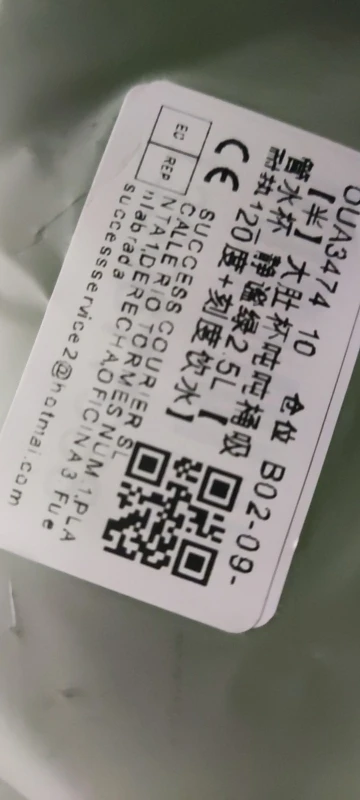 OUA3474 10 仓位 B02-09-
【半】大肚杯吨吨桶吸
管水杯 静谧绿2.5L【
耐热120度+刻度饮水】
EC REP
CE
SUCCESS COURIER SL
CALLE RIO TORMESNUM.1,PLA
NTA1,DERECHAOFICINA3 Fue
nlabrada
successservice2@hotmai.com